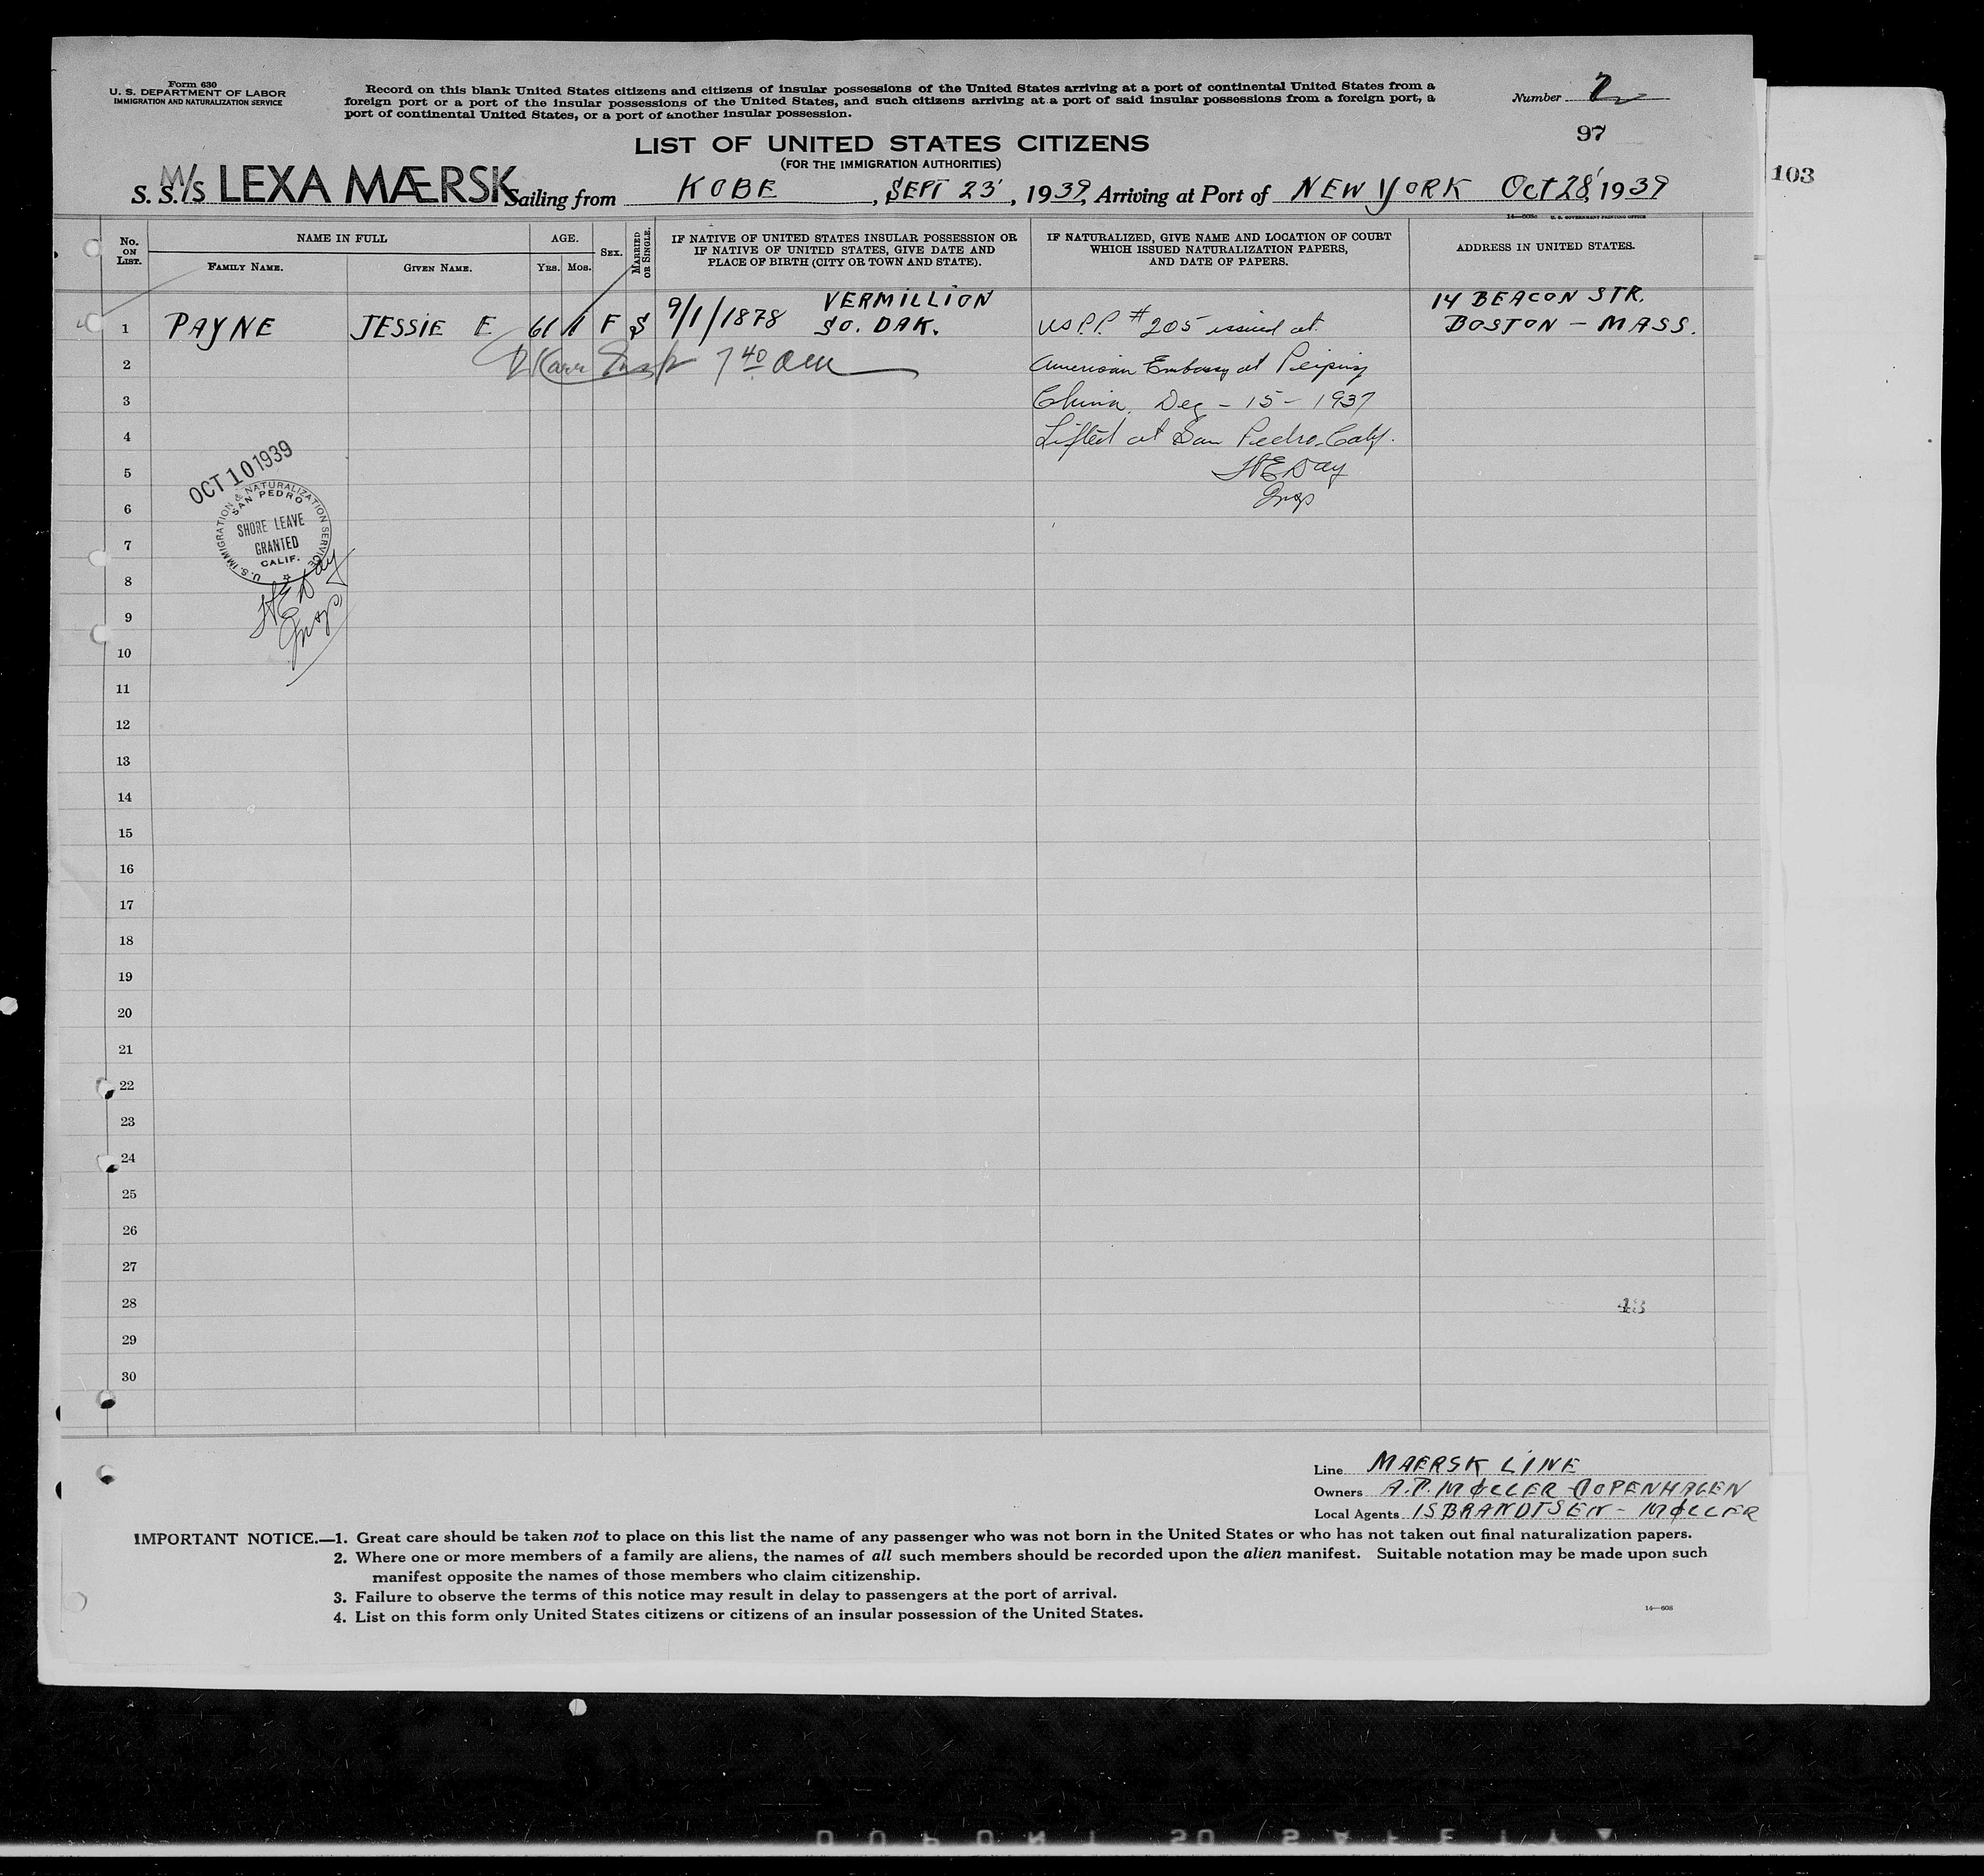 Form 630
U. S. DEPARTMENT OF LABOR
IMMIGRATION AND NATURALIZATION SERVICE
Record on this blank United States citizens and citizens of insular possessions of the United States arriving at a port of continental United States from a
foreign port or a port of the insular possessions of the United States, and such citizens arriving at a port of said insular possessions from a foreign port, a
port of continental United States, or a port of another insular possession.
Number 2
97
103
LIST OF UNITED STATES CITIZENS
(FOR THE IMMIGRATION AUTHORITIES)
S. S. M/S LEXA MÆRSK Sailing from KOBE, SEPT 23, 1939, Arriving at Port of NEW YORK Oct 28, 1939
14—608 U. S. GOVERNMENT PRINTING OFFICE
No. ON LIST.
NAME IN FULL
FAMILY NAME.
GIVEN NAME.
AGE.
YRS. MOS.
SEX.
MARRIED OR SINGLE.
IF NATIVE OF UNITED STATES INSULAR POSSESSION OR
IF NATIVE OF UNITED STATES, GIVE DATE AND
PLACE OF BIRTH (CITY OR TOWN AND STATE).
IF NATURALIZED, GIVE NAME AND LOCATION OF COURT
WHICH ISSUED NATURALIZATION PAPERS,
AND DATE OF PAPERS.
ADDRESS IN UNITED STATES.
VERMILLION
14 BEACON STR.
1 PAYNE JESSIE E 61 1 F S 9/1/1878 SO. DAK. US P.P. #205 issued at BOSTON - MASS.
2 Karr Insp 7 40 am American Embassy at Peiping
3 China. Dec - 15 - 1937
4 Lifted at San Pedro. Calif.
5 HE Day
6 Insp
OCT 10 1939
U.S. IMMIGRATION & NATURALIZATION SERVICE
SAN PEDRO
SHORE LEAVE
GRANTED
CALIF.
7
8
HE Day
9
Insp
10
11
12
13
14
15
16
17
18
19
20
21
22
23
24
25
26
27
28
29
30
Line MAERSK LINE
Owners A.P. MØLLER COPENHAGEN
Local Agents ISBRANDTSEN - MØLLER
IMPORTANT NOTICE.—1. Great care should be taken not to place on this list the name of any passenger who was not born in the United States or who has not taken out final naturalization papers.
2. Where one or more members of a family are aliens, the names of all such members should be recorded upon the alien manifest. Suitable notation may be made upon such
manifest opposite the names of those members who claim citizenship.
3. Failure to observe the terms of this notice may result in delay to passengers at the port of arrival.
4. List on this form only United States citizens or citizens of an insular possession of the United States.
14—608